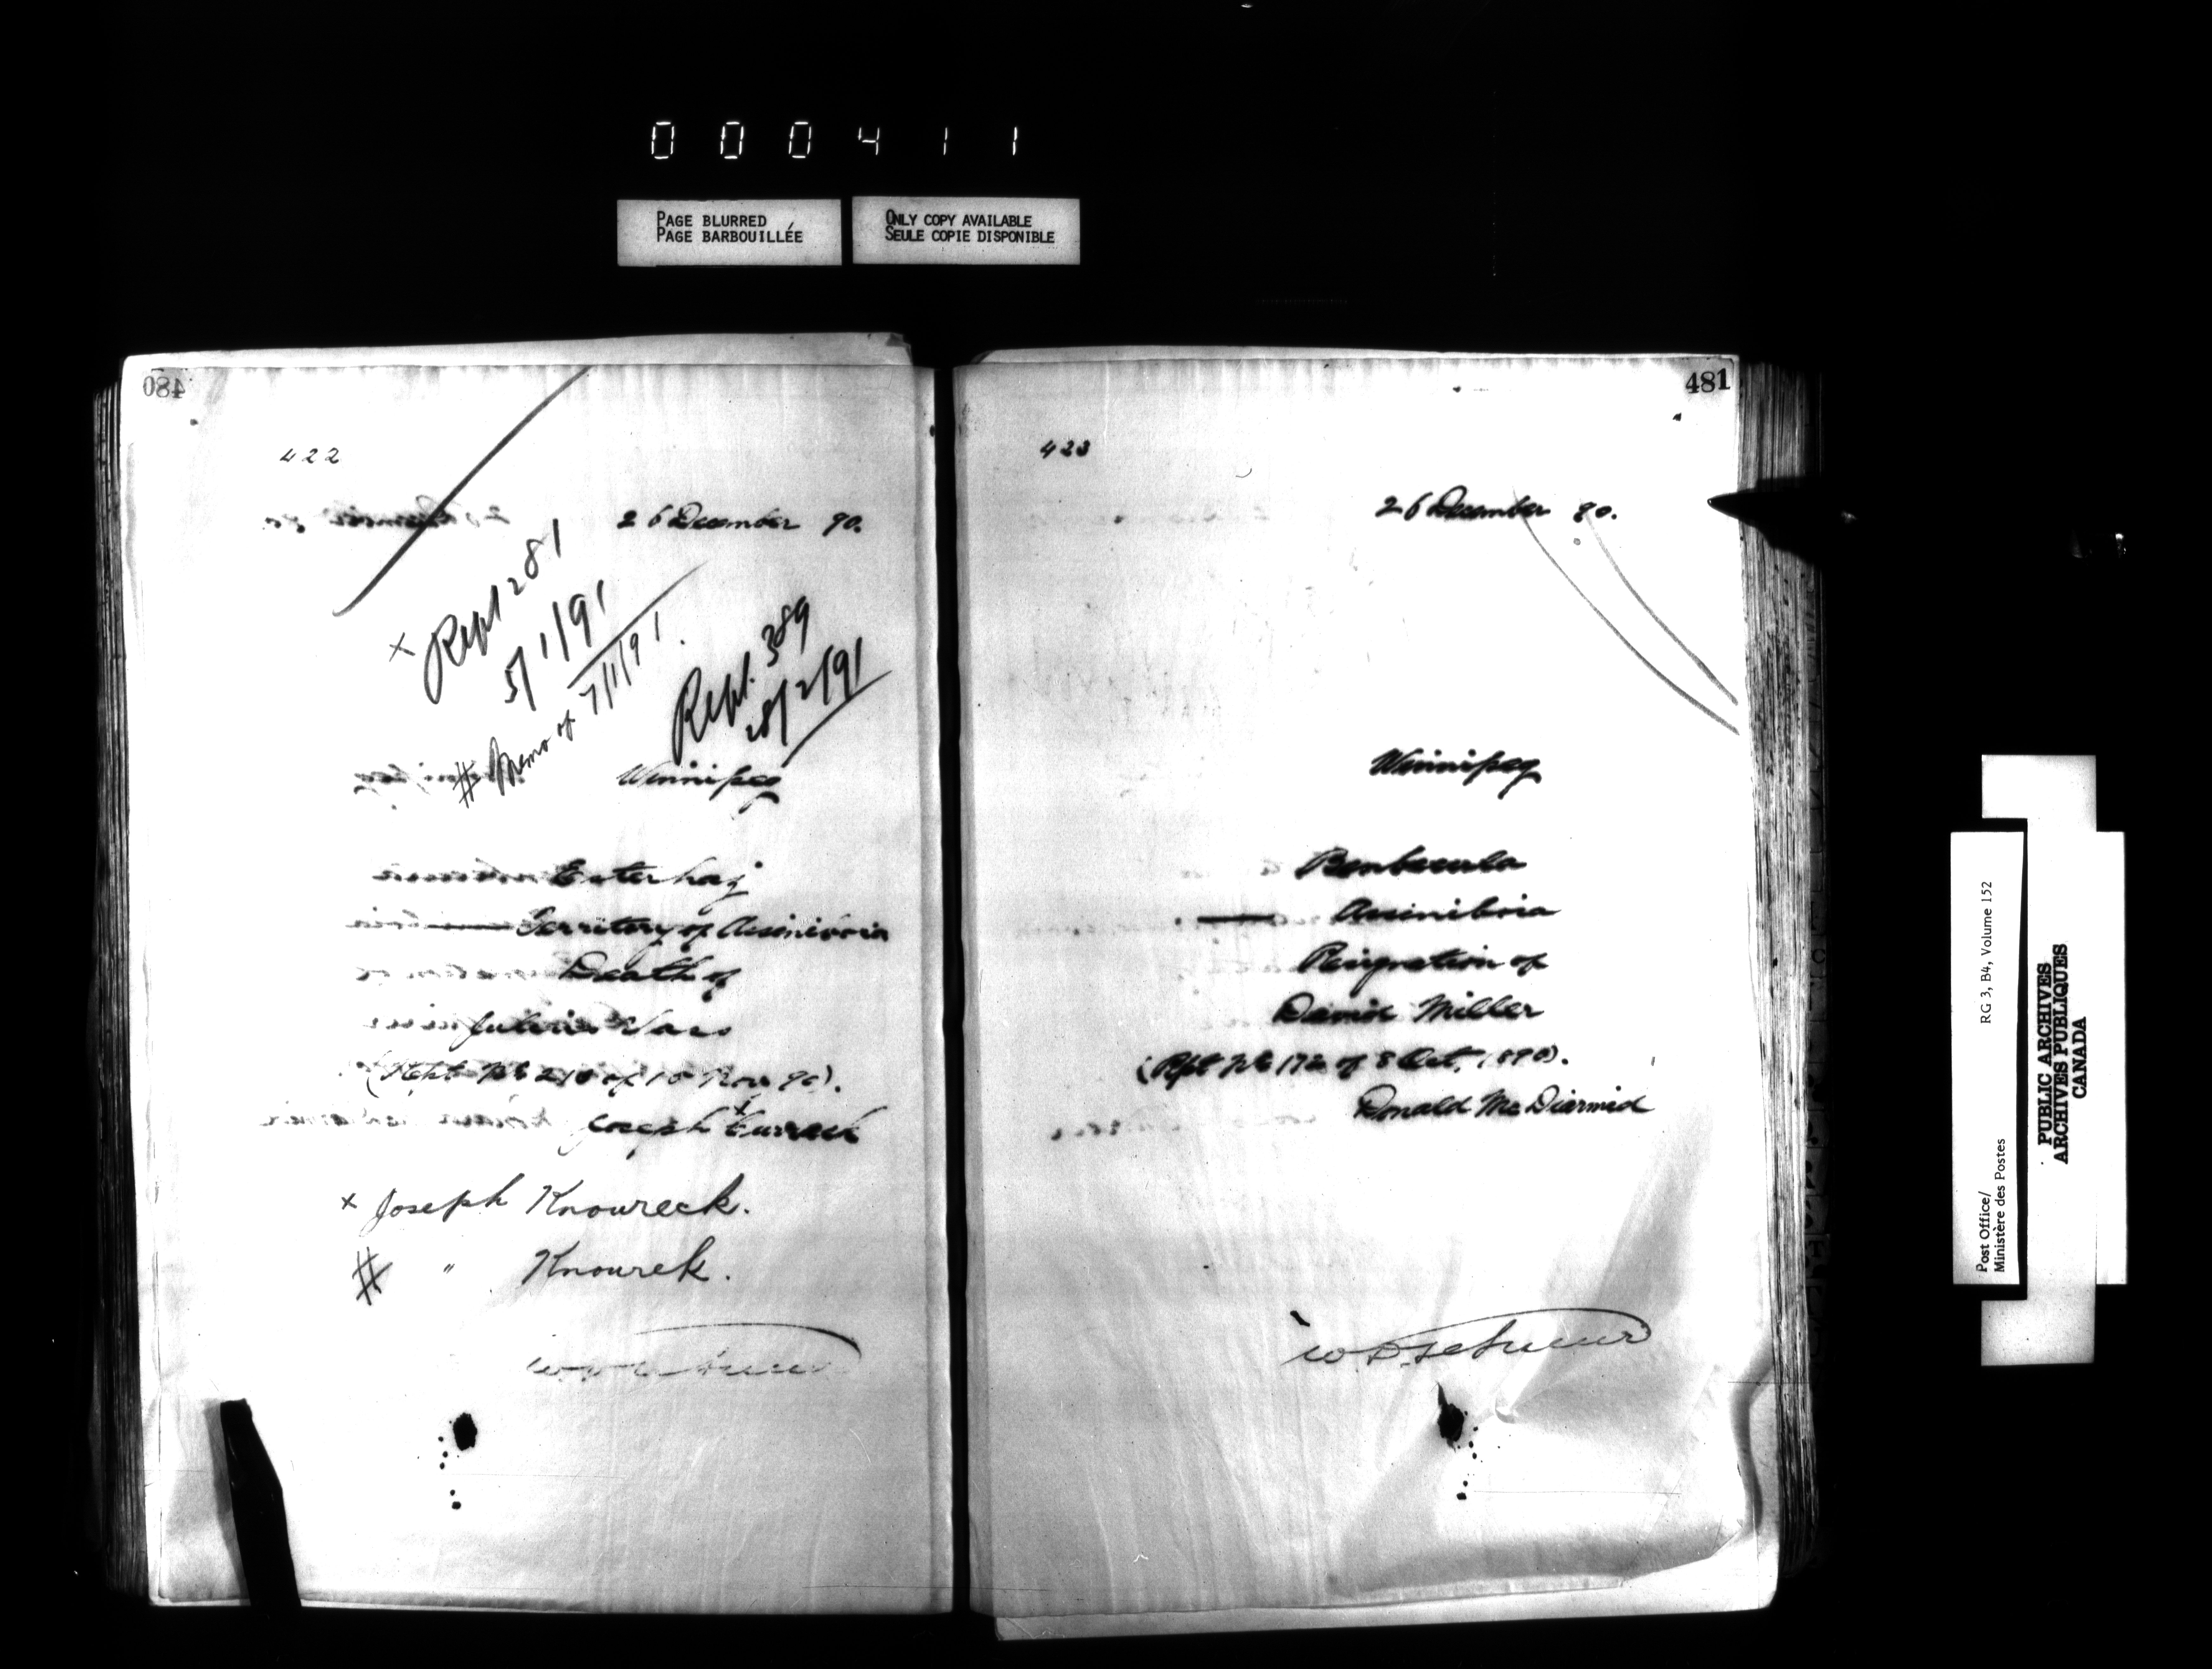 000411
PAGE BLURRED
PAGE BARBOUILLÉE
ONLY COPY AVAILABLE
SEULE COPIE DISPONIBLE
480
422
26 December 90.
x Rept 281
5/1/91
# Memo of 7/1/91.
Rept. 389
28/2/91
Winnipeg
Esterhaz
Territory of Assiniboia
Death of
Julius Vass
(Rept. No 210 of 10 Nov 90).
x
Joseph
x Joseph Knoureck.
# " Knourek.
481
423
26 December 90.
Winnipeg
Benbecula
Assiniboia
Resignation of
Miller
(Rpt No 172 of 8 Oct, 1890).
Donald McDiarmid
Post Office/
Ministère des Postes
RG 3, B4, Volume 152
PUBLIC ARCHIVES
ARCHIVES PUBLIQUES
CANADA